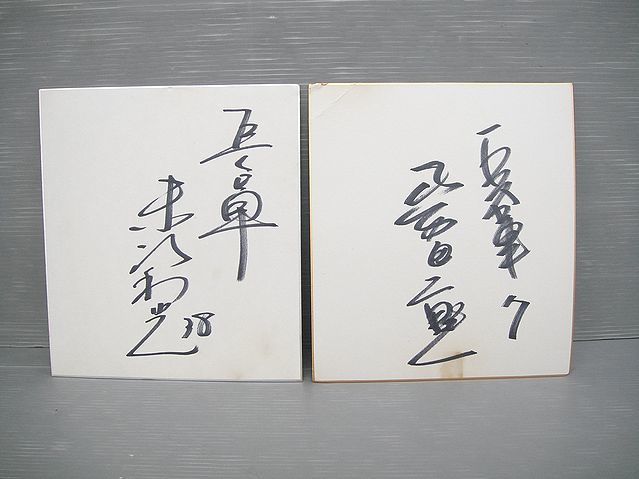 巨人軍
末次利光 38
巨人軍 7
柴田勲